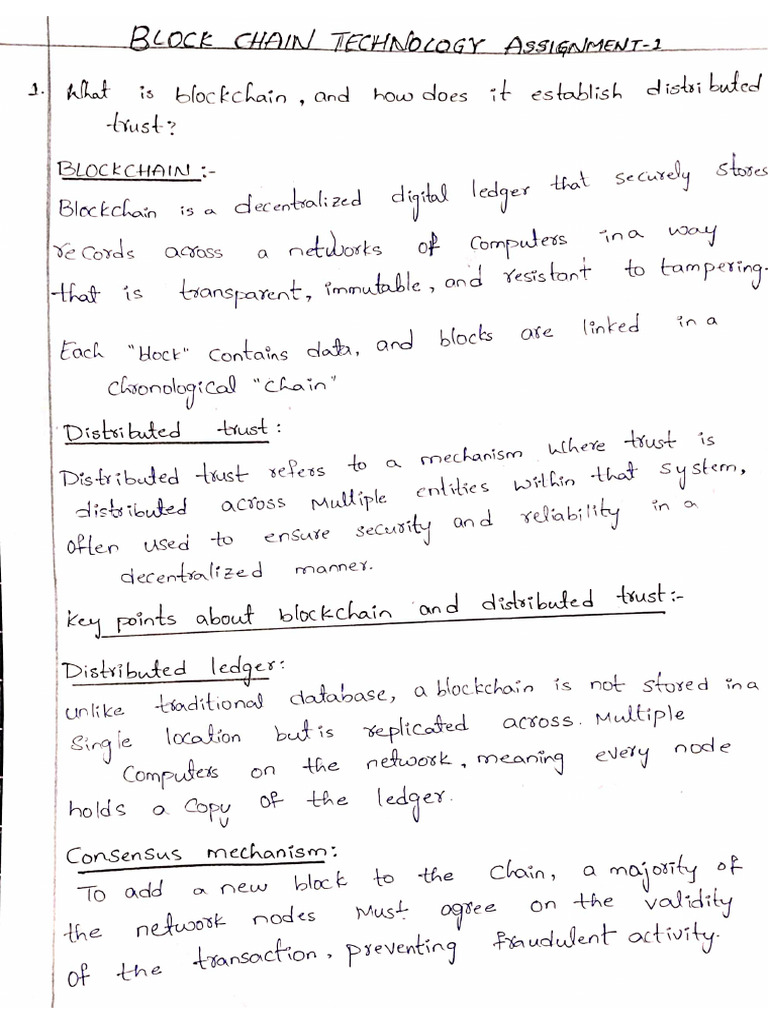 BLOCK CHAIN TECHNOLOGY ASSIGNMENT-1
1. What is blockchain, and how does it establish distributed
trust?
BLOCKCHAIN :-
Blockchain is a decentralized digital ledger that securely stores
records across a networks of computers in a way
that is transparent, immutable, and resistant to tampering.
Each "block" contains data, and blocks are linked in a
chronological "chain"
Distributed trust:
Distributed trust refers to a mechanism where trust is
distributed across Multiple entities within that system,
often used to ensure security and reliability in a
decentralized manner.
Key points about blockchain and distributed trust:-
Distributed ledger:
unlike traditional database, a blockchain is not stored in a
single location but is replicated across. Multiple
Computers on the network, meaning every node
holds a copy of the ledger.
Consensus mechanism:
To add a new block to the chain, a majority of
the network nodes must agree on the validity
of the transaction, preventing fraudulent activity.